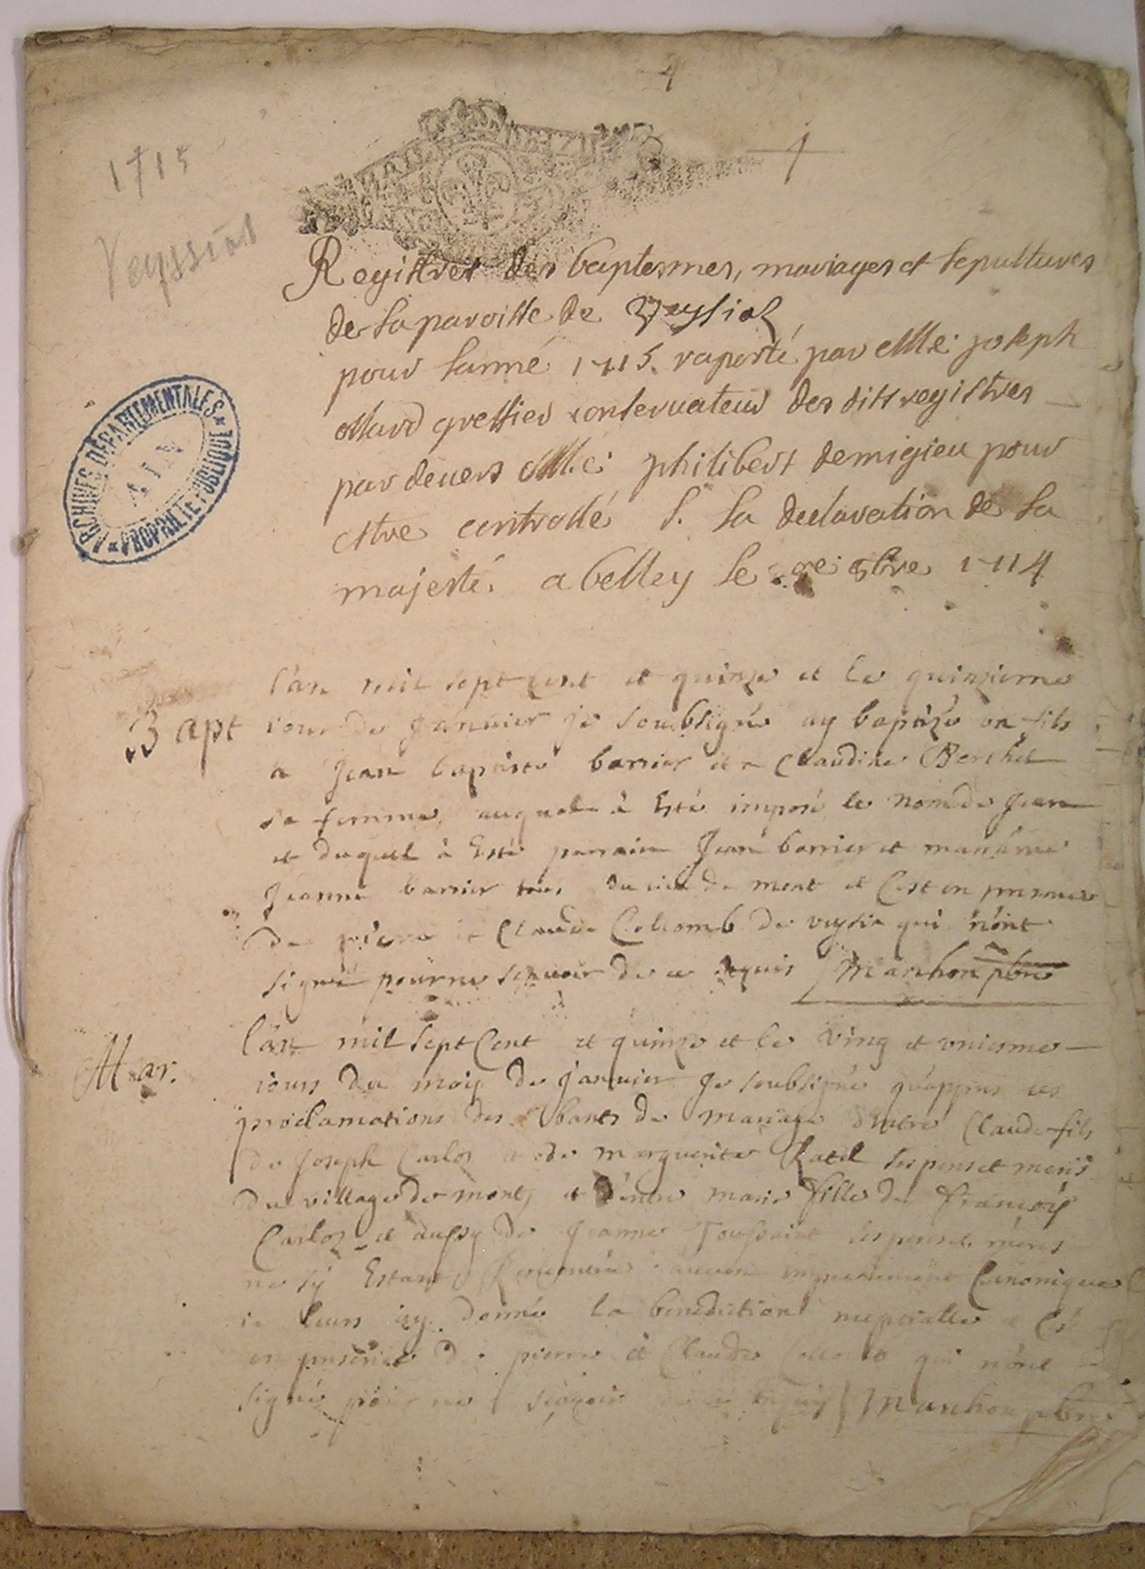 4
1
1715
Veyssiat
Registres des baptesmes, mariages et sepultures
de la paroisse de Veysiat
pour lanné 1715. raporté par Me: joseph
greffier conservateur des dits registres
par devers Me: philibert demigieu pour
estre controllé S. la declaration de sa
majesté. a belley le 1714
ARCHIVES DÉPARTEMENTALES
AIN
PROPRIÉTÉ PUBLIQUE
Bapt
l'an mil sept cent et quinze et le quinzieme
iour de Januier je soubsigné ay baptizé un fils
a Jean baptiste barrier et a Claudine Berthet
sa femme, auquel à Esté imposé le nom de Jean
et duquel à Esté parrain Jean barrier et marraine
Jeanne barrier tous du de mont et C'est en presence
de pierre et Claude Collomb de veysia qui n'ont
signé pour ne scavoir de ce requis Marchon pbre
Mar.
l'an mil sept Cent et quinze et le Ving et uniesme
iour du mois de Januier Je soubsigné qu'appres les
proclamations des bants de mariage Entre Claude fils
de Joseph Carloz et de marguerite ses pere et mere
du village de mont et d'entre marie fille de françois
Carloz et aussy de Jeanne Toussaint ses pere et mere
ne sy Estant aucun empechement Canonique
ie leurs ay donné la benediction nuptialle et C'est
en presence de pierre et Claude Collomb qui n'ont
signé pour ne scavoir de ce requis Marchon pbre